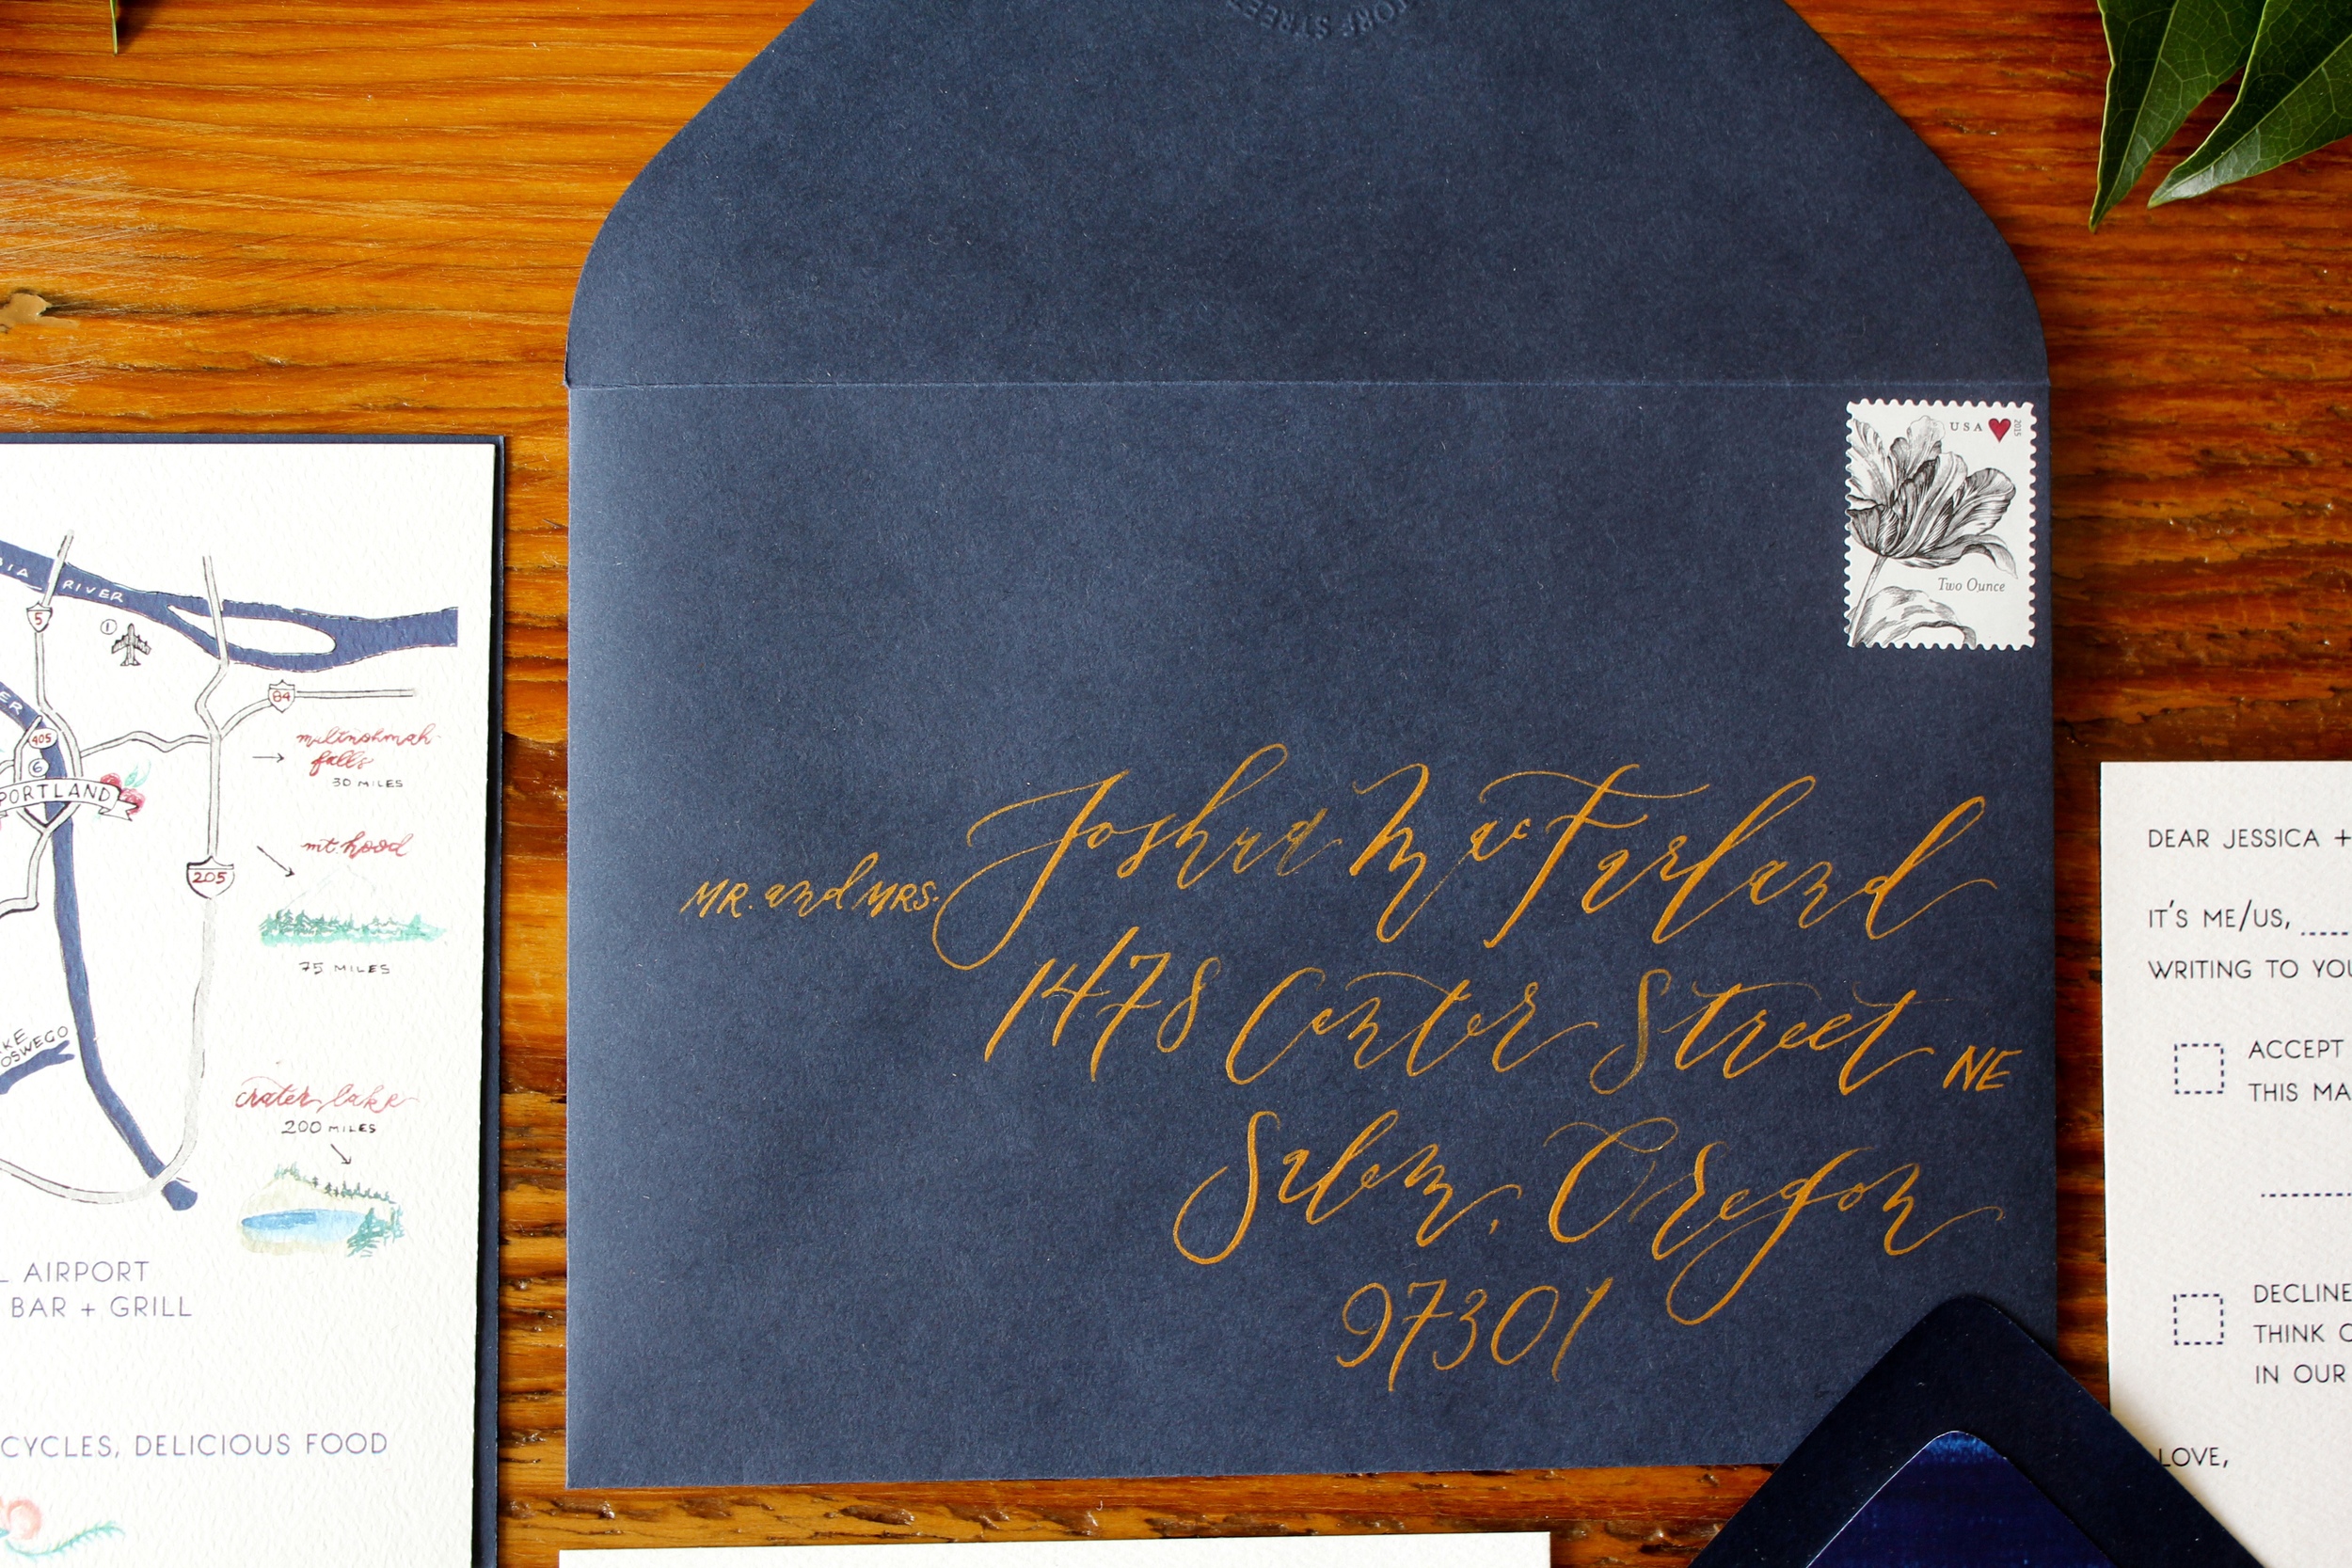 TORF STREET
USA 2015
Two Ounce
MR. and MRS. Joshua MacFarland
1478 Center Street NE
Salem, Oregon
97301
RIVER
5
1
84
405
6
PORTLAND
multnohmah
falls
30 MILES
mt. hood
205
75 MILES
OSWEGO
crater lake
200 MILES
AIRPORT
BAR + GRILL
CYCLES, DELICIOUS FOOD
DEAR JESSICA +
IT'S ME/US,
WRITING TO YOU
ACCEPT
THIS MA
DECLINE
THINK
IN OUR
LOVE,